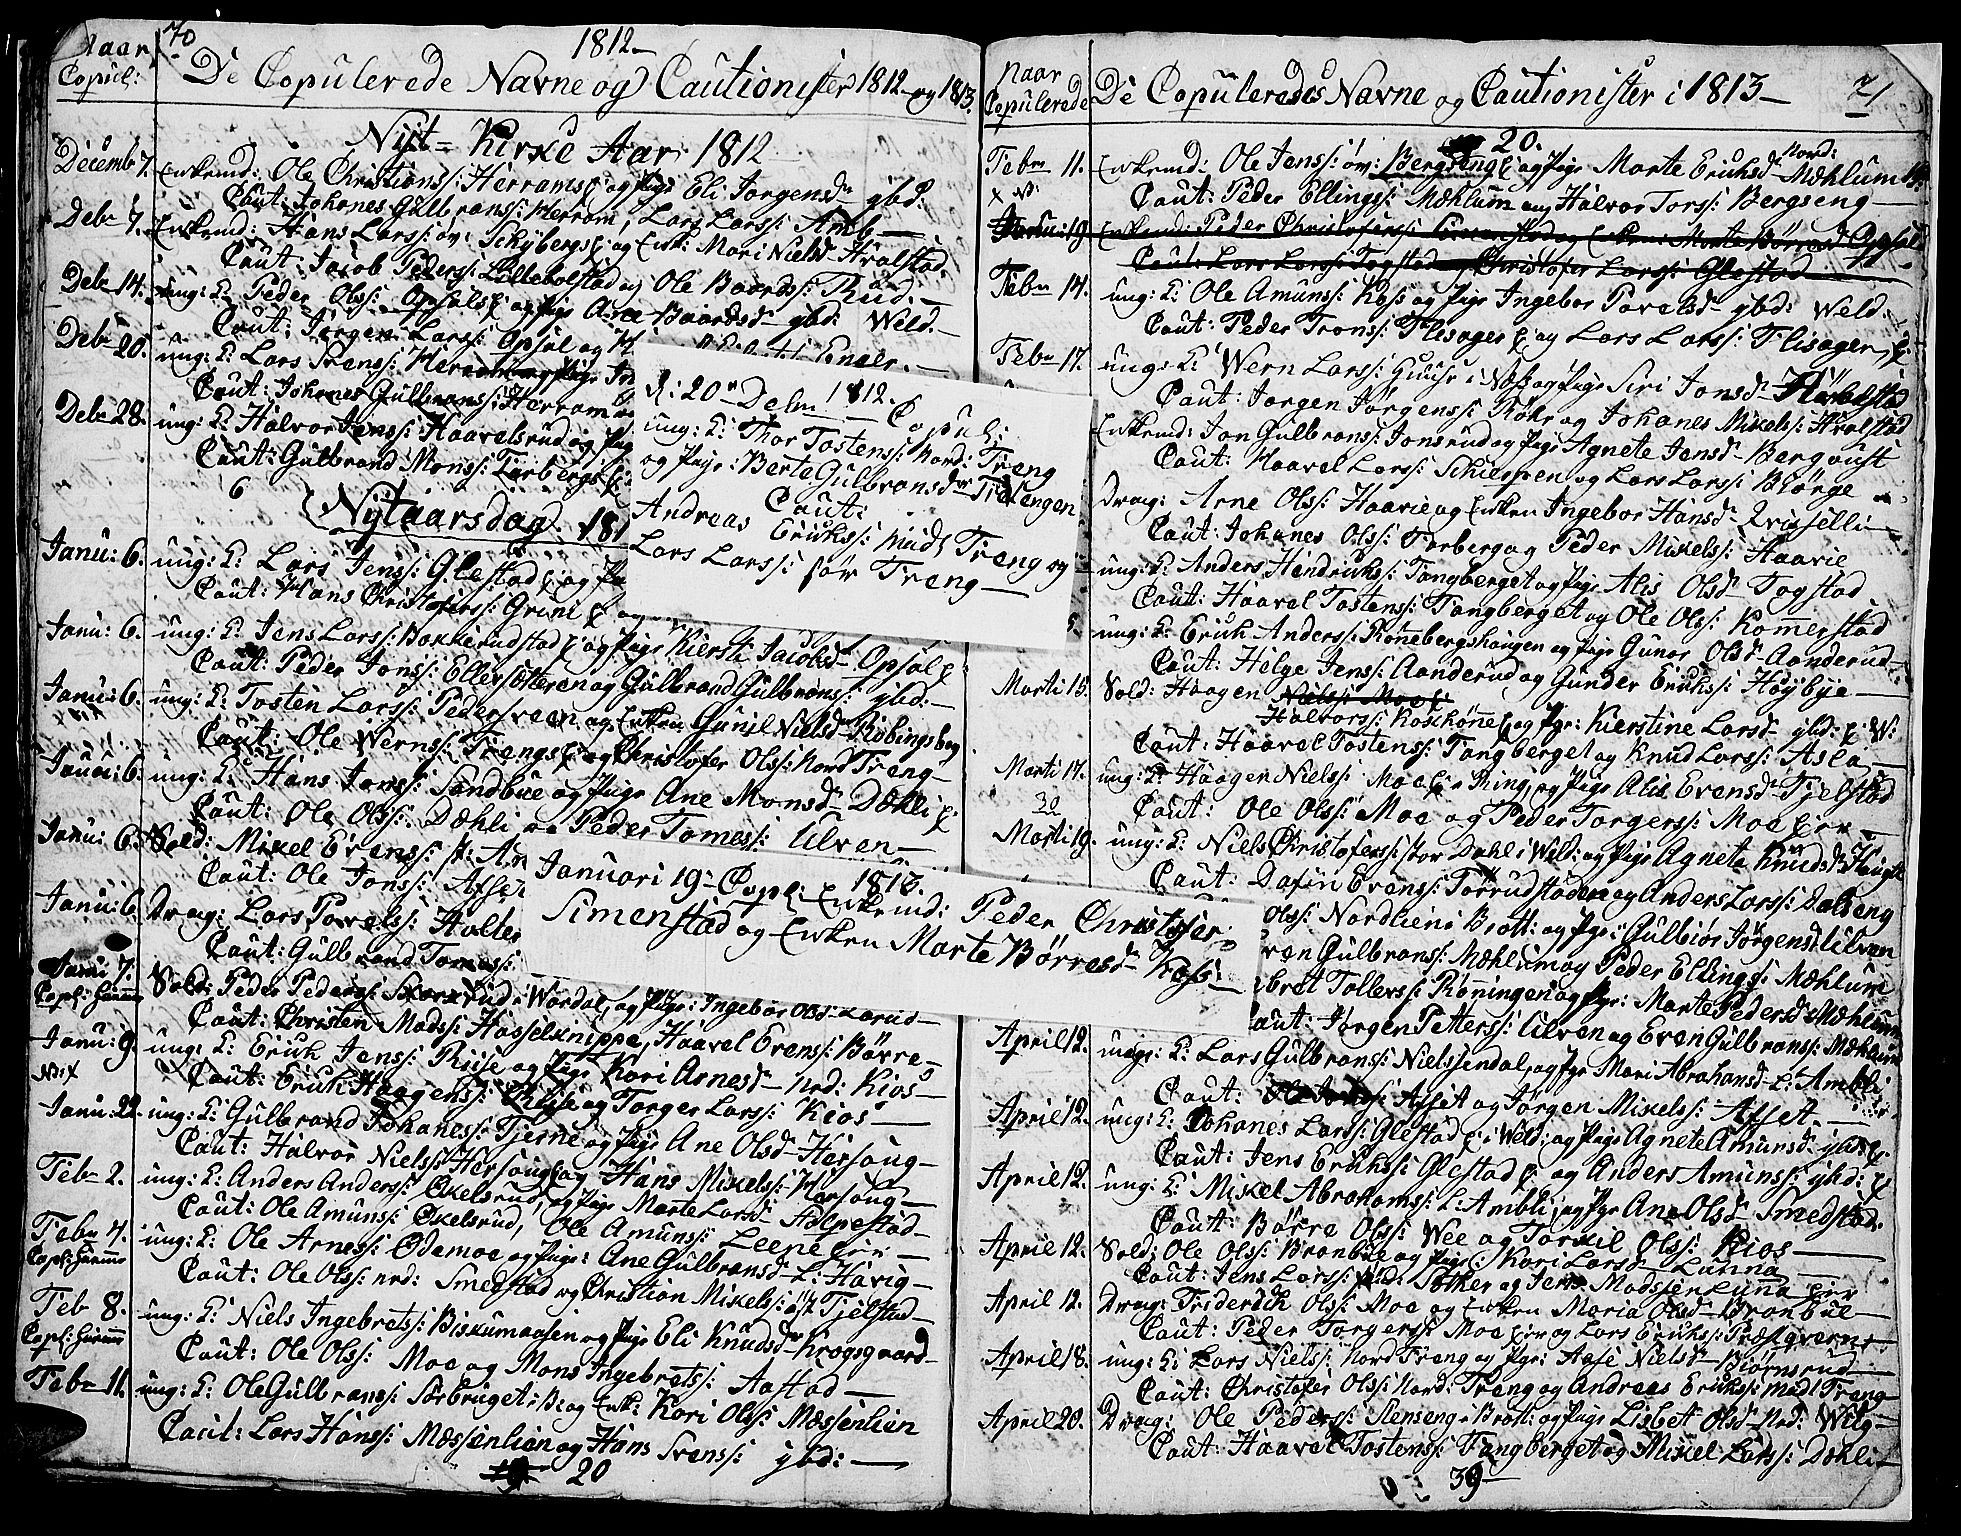 70
1812
Naar Copul:
De Copulerede Navne og Cautionister 1812 og 1813.
Nyt-Kirke Aar 1812
Decemb 7. Enkemd: Ole Christians: Herrams E: og Pige Eli Jorgensd ybd:
Caut: Johanes Gulbrans: Herram, Lars Lars: Amb
Debr 7. Enkemd: Hans Lars: øv: Schybergs E: og Enk: Mari Nielsd Hvalstad.
Caut: Jacob Peders: Lillebolstad og Ole Baards: Rud.
Debr 14. ung: E: Peder Ols: Opsals E: og Pige Ane Baardsd ybd: Weld.
Caut: Jørgen Lars: Opsal og
Debr 20. ung: E: Lars Svens: Herram og Pige
Caut: Johanes Gulbrans: Herram
Debr 28. ung: E: Halvor Jens: Haavelsrud og Pig
Caut: Gulbrand Mons: Torbergs E:
6
Nytaarsdag 181
Janu: 6. ung: E: Lars Jens: Glestad E: og P
Caut: Hans Christofers: Grini E: og
Janu: 6. ung: E: Jens Lars: Bakkerudstad E: og Pige Kiersti Jacobsd Opsal E:
Caut: Peder Jons: Ellersætteren og Gulbrand Gulbrans: ybd:
Janu: 6. ung: E: Tosten Lars: Pedersveen og Enken Gunil Nielsd Robingsbeg
Caut: Ole Werns: Trengs E: og Christofer Ols: Nord Treng
Janu: 6. ung: E: Hans Jons: Sandbue og Pige Ane Monsd Dæhli E:
Caut: Ole Ols: Dæhli og Peder Tomas: Ulven
Janu: 6. Sold: Mikel Evens:
Caut: Ole Jons: Afset
Janu: 6. Drag: Lars Povels: Holte
Caut: Gulbrand Tomas:
Janu: 7. Copl: hiemme Sold: Peder Peders: Skorkrud i Wardal, og Pige: Ingebor Olsd
Caut: Christen Mads: Hasselknippe, Haavel Evens: Børre
Janu: 9. ung: E: Erick Jens: Riise og Pige Kari Arnesd nrd: Kios
Caut: Erick Haagens: Riise og Torger Lars: Kios
Janu: 22. ung: E: Gulbrand Johanes: Tjerne og Pige Ane Olsd Harsaug
Caut: Halvor Niels: Hersoug og Hans Mikels: Harsoug
Febr 2. ung: E: Anders Anders: Økelsrud, og Pige Marte Larsd Holpestad
Caut: Ole Amuns: Økelsrud, Ole Amuns: Leene
Febr 4. Copl: hiemme ung: E: Ole Arnes: Ødemoe og Pige: Ane Gulbransd L: Havig
Caut: Ole Ols: nrd: Smedstad og Christian Mikels: øst Tjelstad
Feb 8. Copl: hiemme ung: E: Niels Ingebrets: Biskumaasen og Pige Eli Knudsd Krogsgaard
Caut: Ole Ols: Moe og Mons Ingebrets: Aastad
Febr 11. ung: E: Ole Gulbrans: Sørbruget i B: og Enk: Kari Olsd Mæssenlien
Caut: Lars Hans: Mæssenlien og Hans Svens: ybd:
20
d: 20 Debr 1812. Copul:
ung: E: Thor Tostens: Nord: Treng
og Pige: Berte Gulbransd Trætengen
Caut:
Andreas Ericks: Midt Treng og
Lars Lars: sør Treng
Januari 19 Copl: 1813.
Enkemd: Peder Christofer
Simenstad og Enken Marte Børresd Kros
Naar Copulerede
De Copuleredes Navne og Cautionister i 1813
71
20.
Febr 11. Enkemd: Ole Jens: øv: Bergseng E: og Pige Marte Ericksd Nord: Mæhlum
Caut: Peder Ellings: Mæhlum og Halvor Tors: Bergseng
Janu: 19 Enkemd: Peder Christofers: Simenstad og Enken: Marte Børresd Opsal
Caut: Lars Lars: Togstad og Christofer Lars: Glestad
Febr 14. ung: E: Ole Amuns: Kos og Pige Ingebor Povelsd ybd: Weld.
Caut: Peder Trons: Flisager E: og Lars Lars: Flisager E:
Febr 17. ung: E: Wern Lars: Huuse i Nas og Pige Siri Jonsd
Caut: Jorgen Jørgens: Rohr og Johanes Mikels: Hvalstad
Enkemd: Jon Gulbrans: Jonsrud og Pige Agnete Jensd Bergqvist
Caut: Haavel Lars: Schiespen og Lars Lars: Biørge
Drag: Arne Ols: Haarie og Enken Ingebor Hansd Qviselli
Caut: Johanes Ols: Torberg og Peder Mikels: Haarie
ung: E: Anders Hendricks: Tangberget og Pige Alis Olsd Togstad
Caut: Haavel Tostens: Tangberget og Ole Ols: Komerstad
ung: E: Erick Anders: Rønebergshougen og Pige Gunor Olsd Aanderud
Caut: Helge Jens: Aanderud og Gunder Ericks: Høybye
Marti 15. Sold: Haagen Niels: Moe
Halvors: Koskønne E: og Pge: Kierstine Larsd ybd: E: W:
Caut: Haavel Tostens: Tangberget og Knud Lars: Asla
Marti 17. ung: E: Haagen Niels: Moe E: i Ring, og Pige Alis Evensd Tjelstad
Caut: Ole Ols: Moe og Peder Torgers: Moe
30
Marti 19. ung: E: Niels Christofers: stor Dahl i Weld: og Pige Agnete Knudsd Hougli
Caut: Dafin Evens: Torrudstøderne og Anders Lars: Dalseng
Ols: Nordlien i Brott: og Pge: Gulbiør Jørgensd Ulven
ven Gulbrans: Mæhlum og Peder Ellings: Mæhlum
bret Tollers: Rønningen og Pge: Marte Pedersd Mæhlum
aut: Jørgen Petters: Ulven og Even Gulbrans: Mæhlum
April 12. unge: E: Lars Gulbrans: Nielsendal, og Pge Mari Abrahamsd L: Ambli
Caut: Afset og Jørgen Mikels: Afset
April 12. ung: E: Johanes Lars: Glestad E: i Weld: og Pige Agnete Amunsd ybd E:
Caut: Jens Ericks: Glestad E: og Anders Amuns: ybd: E:
April 12. ung: E: Mikel Abrahams: L: Ambli, og Pge Ane Olsd Smedstad.
Caut: Børre Ols: Wee og Torkil Ols: Kios
April 12. Sold: Ole Ols: Bronbue og Pige: Kari Larsd Lunna
Caut: Jens Lars: og Jens Madssen Luna
April 12. Drag: Friderich Ols: Moe og Enken Maria Olsd Bronbue
Caut: Peder Torgers: Moe og Lars Ericks: Præstqvern
April 18. ung: E: Lars Niels: Nord Treng og Pge: Aase Nielsd Biørnsrud
Caut: Christofer Ols: Nord: Treng og Andreas Ericks: Midt Treng
April 20. Drag: Ole Peders: Stenseng i Brott: og Pige Lisbet Olsd Nrd: Wilg
Caut: Haavel Tostens: Tangberget og Mikel Lars: Dæhli
39